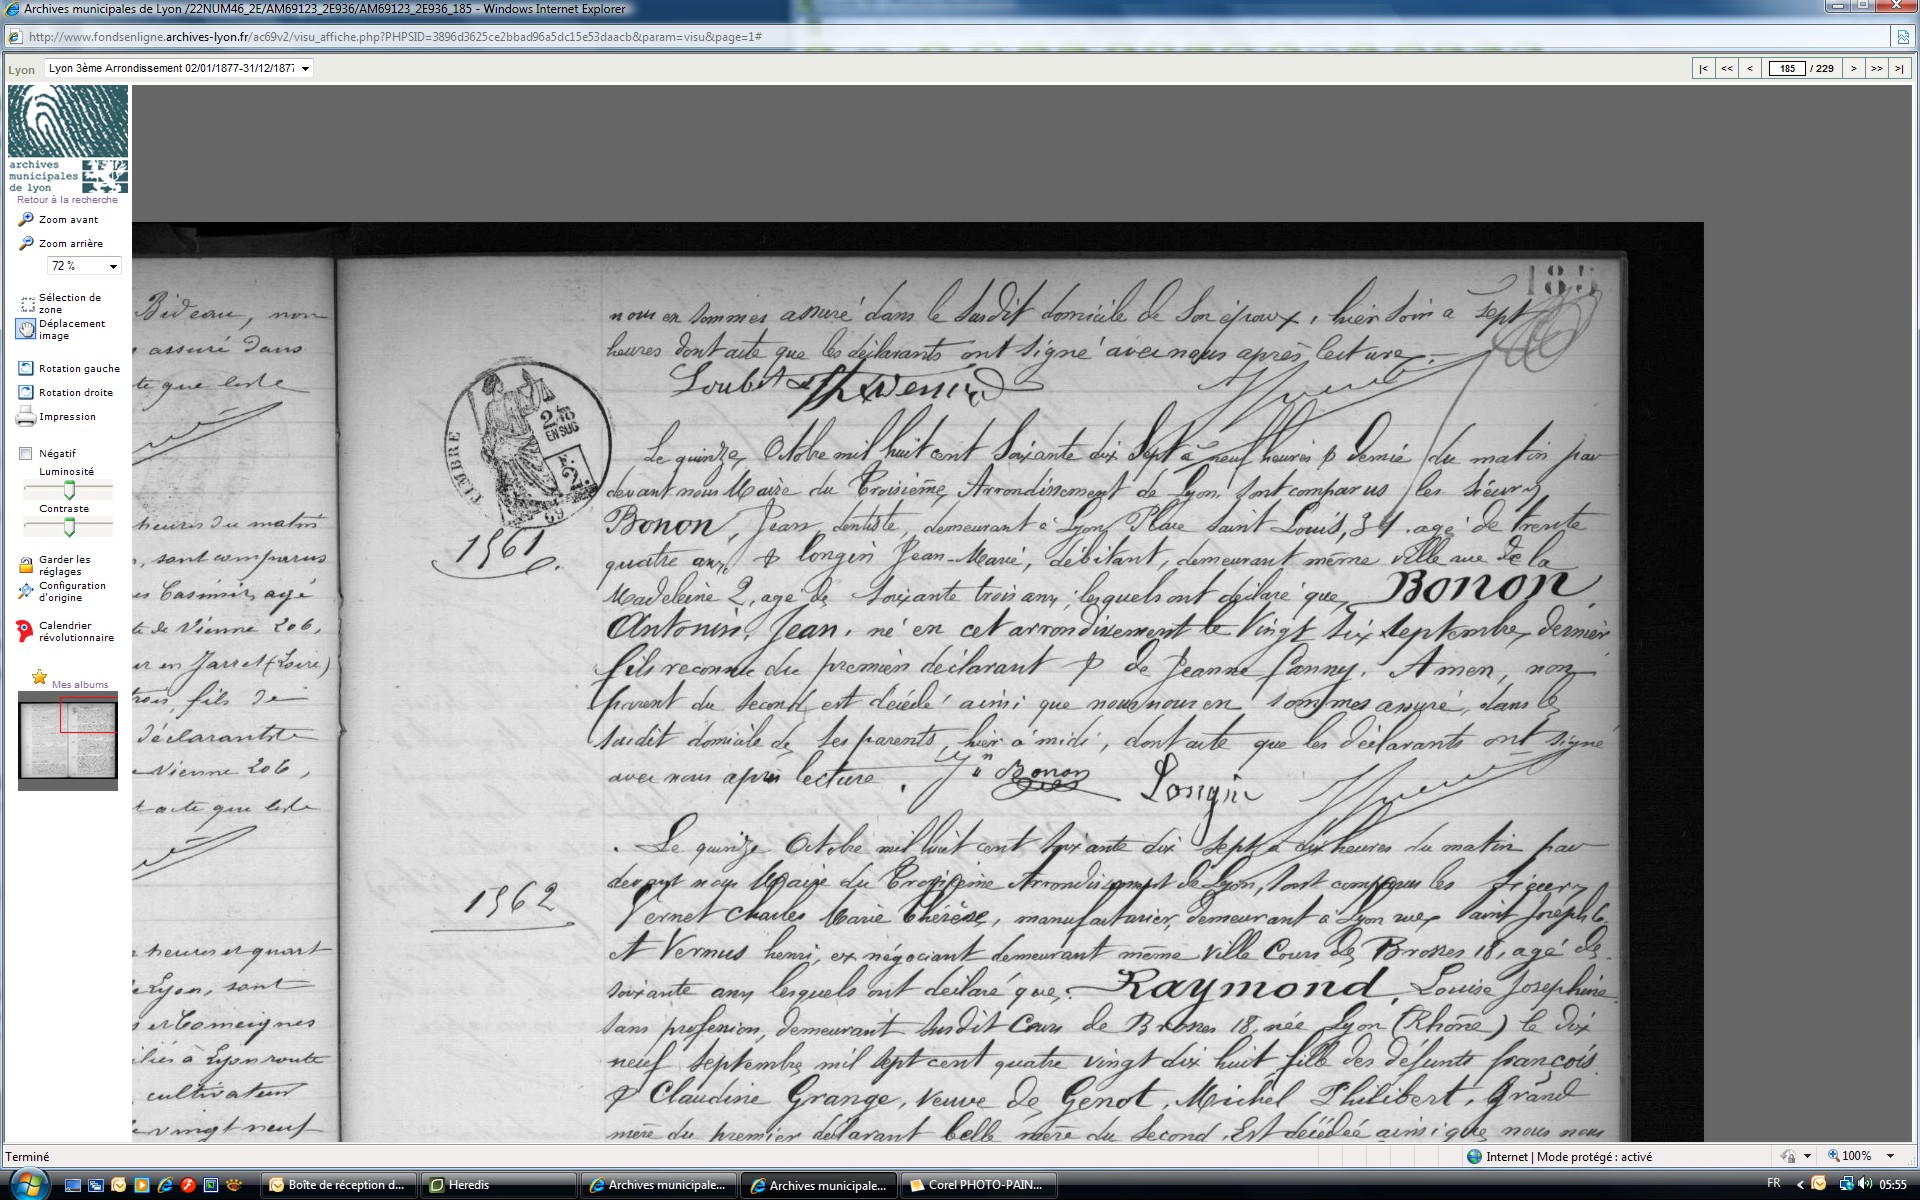 Archives municipales de Lyon /22NUM46_2E/AM69123_2E936/AM69123_2E936_185 - Windows Internet Explorer
http://www.fondsenligne.archives-lyon.fr/ac69v2/visu_affiche.php?PHPSID=3896d3625ce2bbad96a5dc15e53daacb&param=visu&page=1#
Lyon Lyon 3ème Arrondissement 02/01/1877-31/12/1877
|< << < 185 / 229 > >> >|
archives
municipales
de lyon
Retour à la recherche
Zoom avant
Zoom arrière
72 %
Sélection de
zone
Déplacement
image
Rotation gauche
Rotation droite
Impression
Négatif
Luminosité
Contraste
Garder les
réglages
Configuration
d'origine
Calendrier
révolutionnaire
Mes albums
Bideau, non
assuré dans
te que les d
heures du matin
, sont comparus
Casimir, agé
te de Vienne 206,
en Jarret (Loire)
fils de
déclarant te
Vienne 206,
t acte que les d
heures et quart
Lyon, sont
et Comeignes
liés à Lyon route
cultivateur
vingt neuf
185
nous en sommes assuré dans le susdit domicile de son époux, hier soir à sept
heures dont acte que les déclarants ont signé avec nous après lecture.
Loubet Thevenin
TIMBRE
2/10
EN SUS
1561.
Le quinze Octobre mil huit cent soixante dix sept à neuf heures & demie du matin par
devant nous Maire du Troisième Arrondissement de Lyon sont comparus les sieurs
Bonon, Jean, dentiste, demeurant à Lyon Place Saint Louis, 31 agé de trente
quatre ans & Longin Jean-Marie, débitant, demeurant même ville rue de la
Madeleine 2, agé de soixante trois ans, lesquels ont déclaré que Bonon
Antonin, Jean, né en cet arrondissement le vingt six septembre dernier
fils reconnu du premier déclarant & de Jeanne Fanny Amen, non
parent du second, est décédé ainsi que nous nous en sommes assuré, dans le
susdit domicile de ses parents, hier à midi, dont acte que les déclarants ont signé
avec nous après lecture. Jn Bonon Longin
1562
Le quinze Octobre mil huit cent soixante dix sept à dix heures du matin par
devant nous Maire du Troisième Arrondissement de Lyon, sont comparus les sieurs
Vernet Charles Marie Thérèse, manufacturier, demeurant à Lyon rue Saint Joseph 6
et Vermus henri, ex négociant demeurant même ville Cours de Brosses 18, agé de
soixante ans lesquels ont déclaré que Raymond, Louise Josephine
sans profession, demeurant susdit Cours de Brosses 18, née Lyon (Rhône) le dix
neuf septembre mil sept cent quatre vingt dix huit fille des défunts françois
& Claudine Grange, Veuve de Genot, Michel Philibert, Grand
mère du premier déclarant belle mère du second, Est décédée ainsi que nous nous
Terminé
Internet | Mode protégé : activé
100%
Boîte de réception d...
Heredis
Archives municipale...
Archives municipale...
Corel PHOTO-PAIN...
FR
05:55